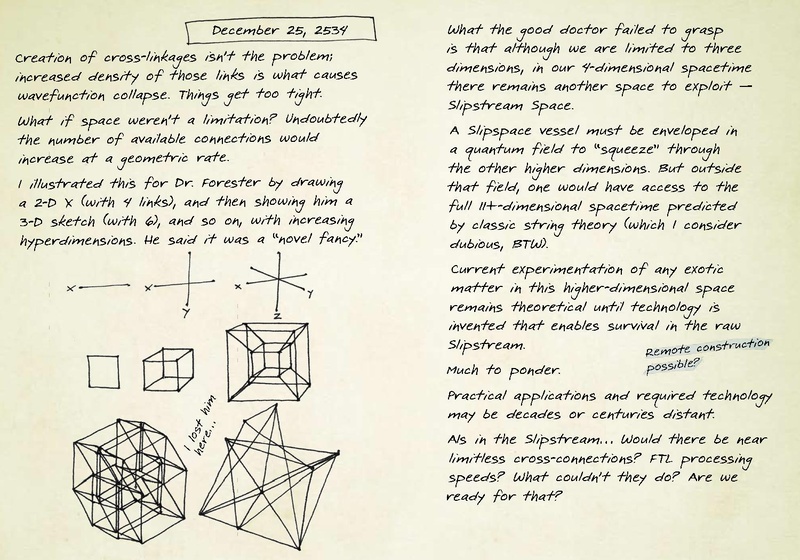 December 25, 2534
Creation of cross-linkages isn't the problem;
increased density of those links is what causes
wavefunction collapse. Things get too tight.
What if space weren't a limitation? Undoubtedly
the number of available connections would
increase at a geometric rate.
I illustrated this for Dr. Forester by drawing
a 2-D X (with 4 links), and then showing him a
3-D sketch (with 6), and so on, with increasing
hyperdimensions. He said it was a "novel fancy."
X
X
Y
X
Y
Z
I lost him
here...
What the good doctor failed to grasp
is that although we are limited to three
dimensions, in our 4-dimensional spacetime
there remains another space to exploit —
Slipstream Space.
A Slipspace vessel must be enveloped in
a quantum field to "squeeze" through
the other higher dimensions. But outside
that field, one would have access to the
full 11+-dimensional spacetime predicted
by classic string theory (which I consider
dubious, BTW).
Current experimentation of any exotic
matter in this higher-dimensional space
remains theoretical until technology is
invented that enables survival in the raw
Slipstream.
Remote construction
possible?
Much to ponder.
Practical applications and required technology
may be decades or centuries distant.
AIs in the Slipstream... Would there be near
limitless cross-connections? FTL processing
speeds? What couldn't they do? Are we
ready for that?